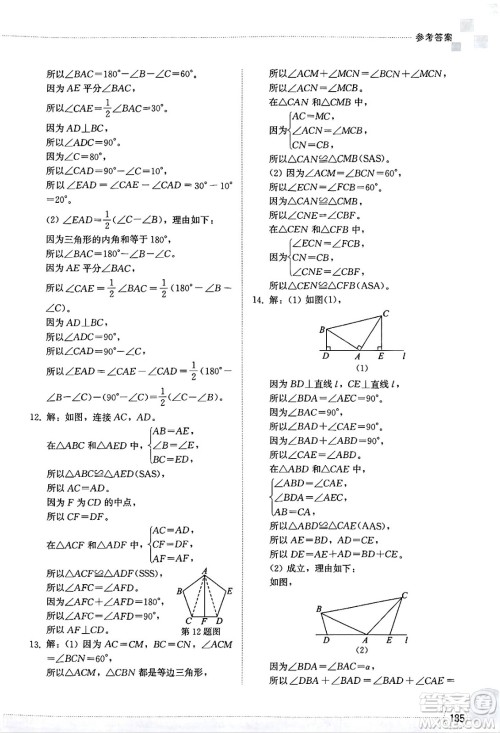 参考答案
所以∠BAC=180°-∠B-∠C=60°,
因为 AE 平分∠BAC,
所以∠CAE=1/2∠BAC=30°.
因为 AD⊥BC,
所以∠ADC=90°.
因为∠C=80°,
所以∠CAD=10°.
所以∠EAD=∠CAE-∠CAD=30°-10°
=20°.
(2)∠EAD=1/2(∠C-∠B),理由如下:
因为三角形的内角和等于180°,
所以∠BAC=180°-∠B-∠C.
因为 AE 平分∠BAC,
所以∠CAE=1/2∠BAC=1/2(180°-∠B
-∠C).
因为 AD⊥BC,
所以∠ADC=90°.
所以∠CAD=90°-∠C.
所以∠EAD=∠CAE-∠CAD=1/2(180°
-∠B-∠C)-(90°-∠C)=1/2(∠C-∠B).
12. 解:如图,连接 AC,AD.
在△ABC 和△AED 中,
AB=AE,
∠B=∠E,
BC=ED,
所以△ABC≌△AED(SAS).
所以 AC=AD.
因为 F 为 CD 的中点,
所以 CF=DF.
在△ACF 和△ADF 中,
AC=AD,
CF=DF,
AF=AF,
所以△ACF≌△ADF(SSS),
所以∠AFC=∠AFD.
又因为∠AFC+∠AFD=180°,
所以∠AFC=∠AFD=90°.
所以 AF⊥CD.
A
B
E
C
F
D
第12题图
13. 解:(1)因为 AC=CM,BC=CN,∠ACM
=∠BCN=60°,
所以△ACM,△CBN 都是等边三角形,
所以∠ACM+∠MCN=∠BCN+∠MCN.
所以∠ACN=∠MCB.
在△CAN 和△CMB 中,
AC=MC,
∠ACN=∠MCB,
CN=CB,
所以△CAN≌△CMB(SAS).
(2)因为∠ACM=∠BCN=60°,
所以∠ECN=60°=∠BCF.
因为△CAN≌△CMB,
所以∠CNE=∠CBF.
在△CEN 和△CFB 中,
∠ECN=∠BCF,
CN=CB,
∠CNE=∠CBF,
所以△CEN≌△CFB(ASA).
14. 解:(1)如图(1),
C
B
D
A
E
l
(1)
因为 BD⊥直线 l,CE⊥直线 l,
所以∠BDA=∠CEA=90°.
因为∠BAC=90°,
所以∠BAD+∠CAE=90°.
因为∠BAD+∠ABD=90°,
所以∠CAE=∠ABD.
在△ADB 和△CEA 中,
∠ABD=∠CAE,
∠BDA=∠AEC,
AB=CA,
所以△ADB≌△CEA(AAS).
所以 AE=BD,AD=CE.
所以 DE=AE+AD=BD+CE.
(2)成立,理由如下:
如图,
C
B
D
A
E
l
(2)
因为∠BDA=∠BAC=α,
所以∠DBA+∠BAD=∠BAD+∠CAE=
195